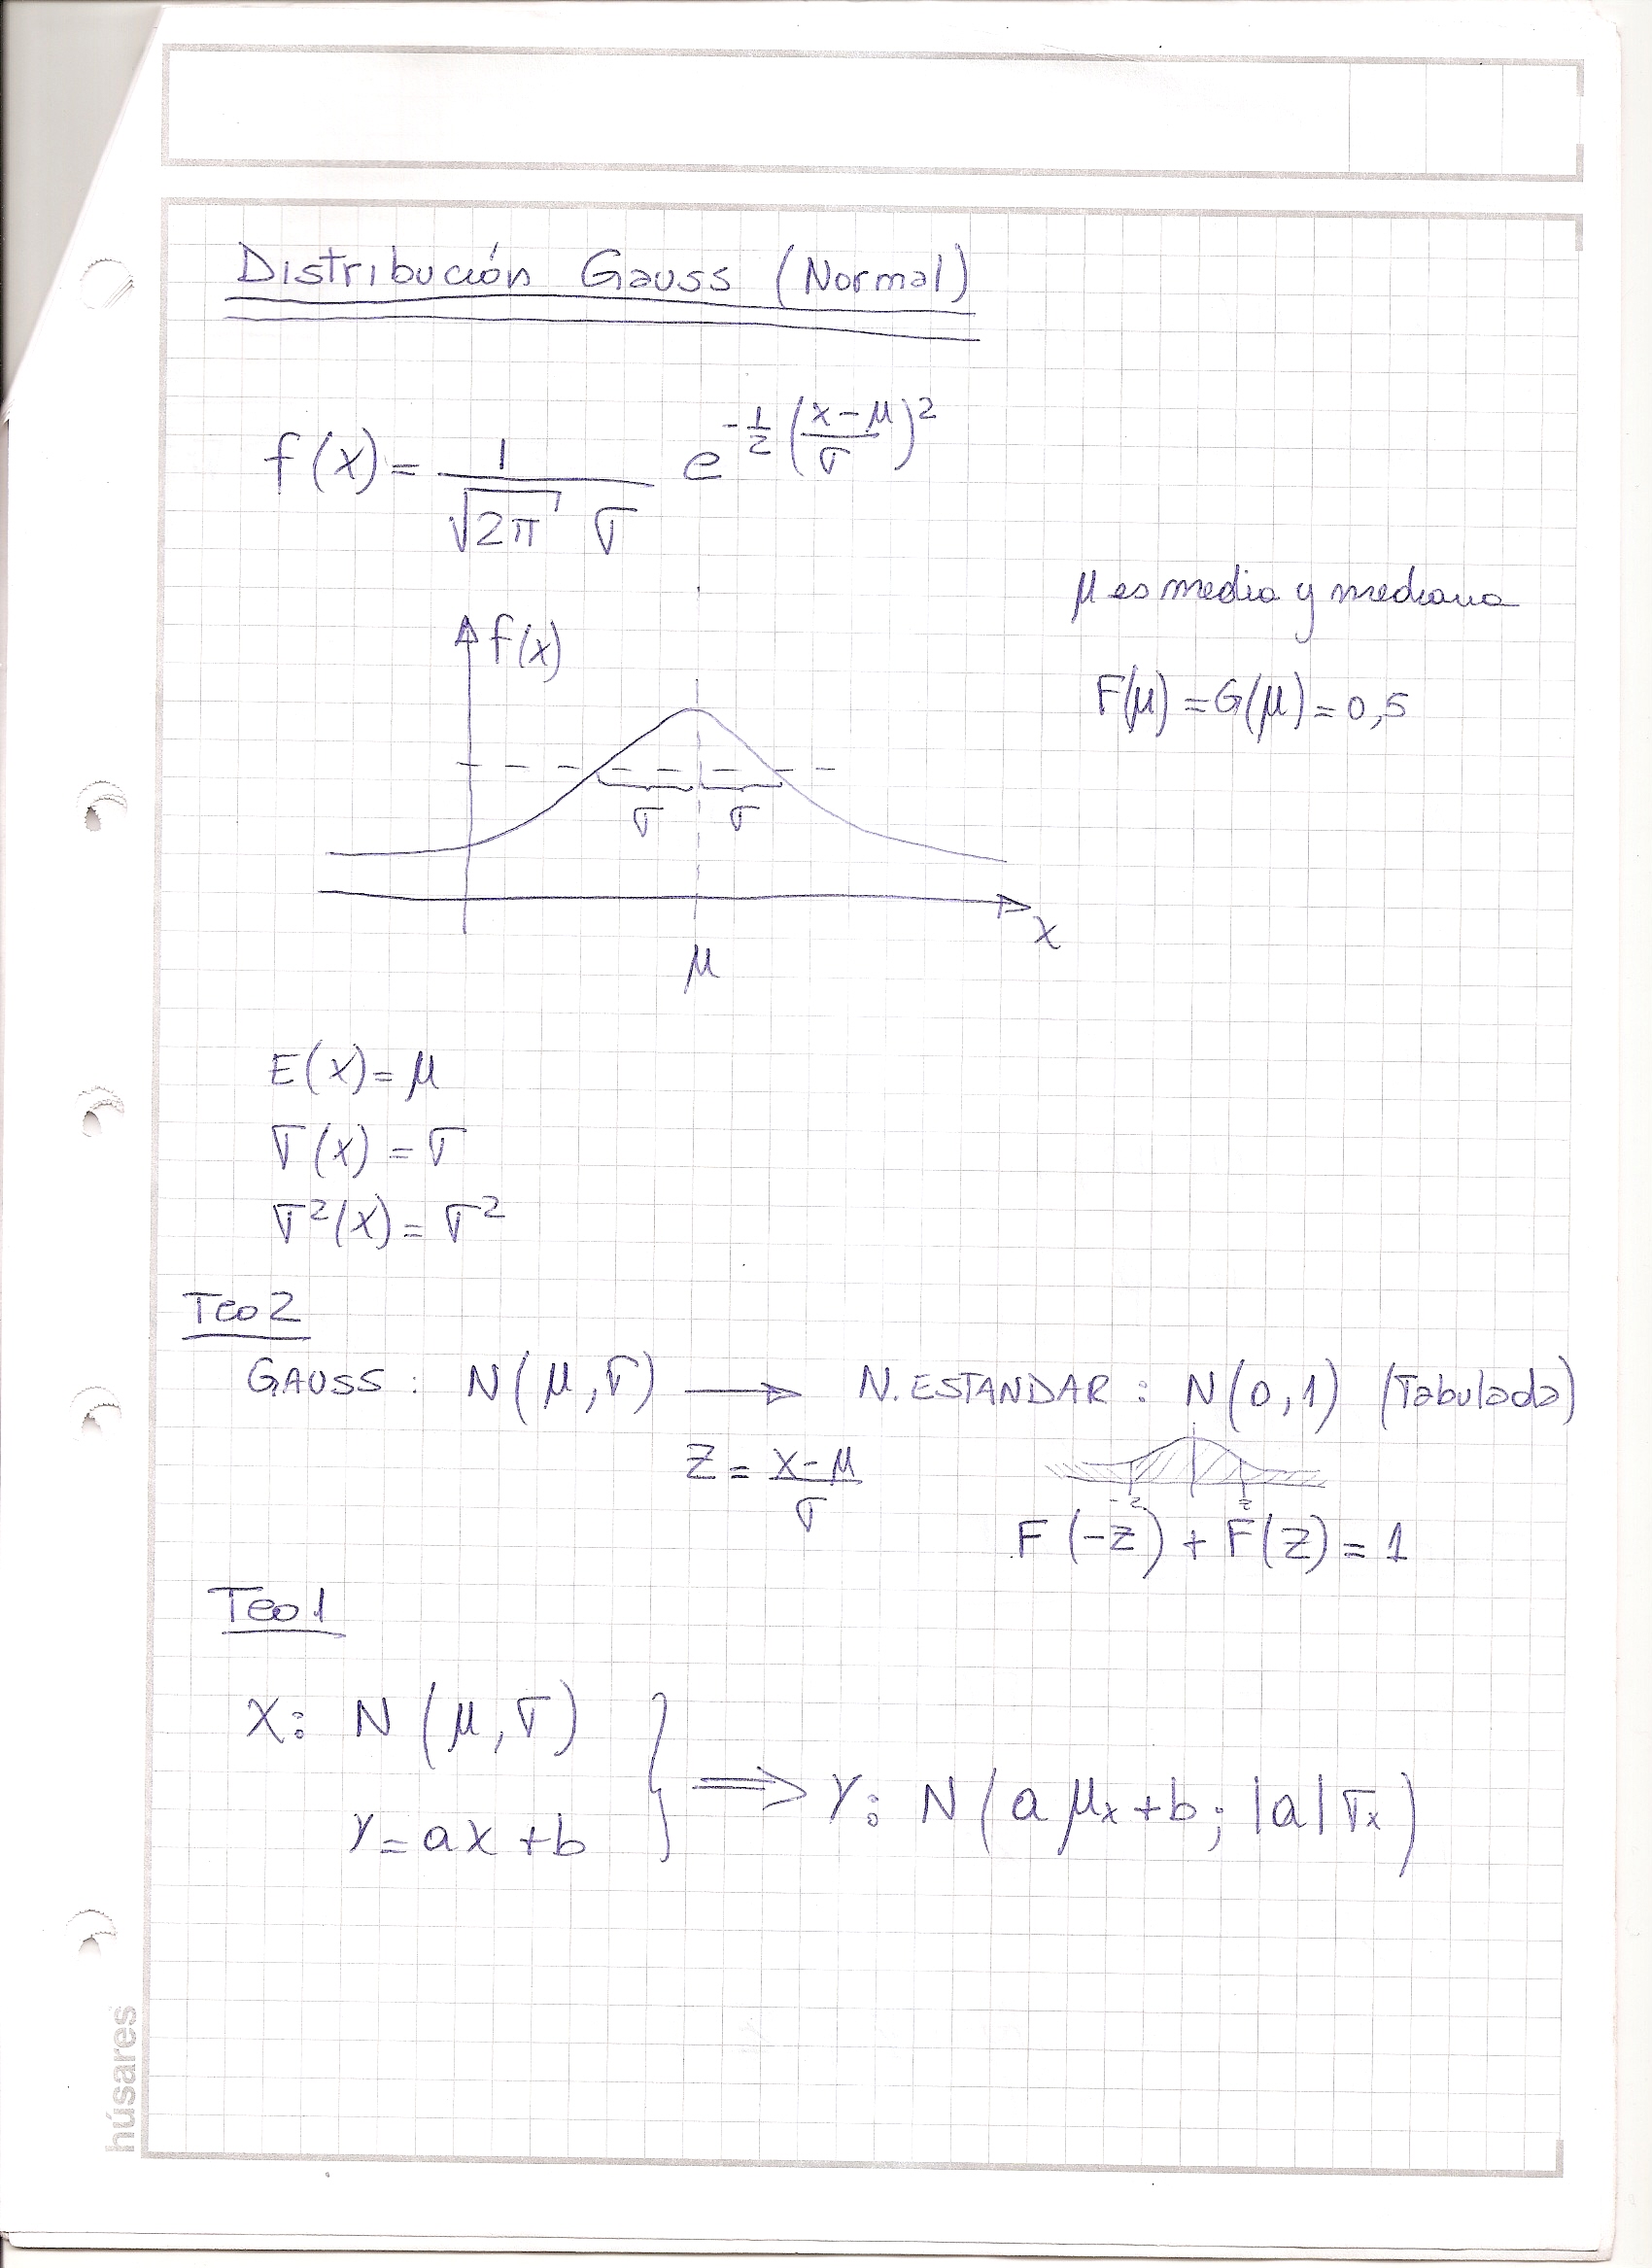 Distribución Gauss (Normal)
f(x) = 1/(√2π σ) e^(-1/2 ((x-μ)/σ)^2)
μ es media y mediana
f(x)
F(μ) = G(μ) = 0,5
σ σ
x
μ
E(x) = μ
σ(x) = σ
σ²(x) = σ²
Teo 2
GAUSS : N(μ, σ) → N. ESTANDAR : N(0,1) (Tabulada)
Z = (x-μ)/σ
-z z
F(-z) + F(z) = 1
Teo 1
X: N(μ, σ)
Y = ax + b
⟹ Y: N(a μx + b ; |a| σx)
húsares